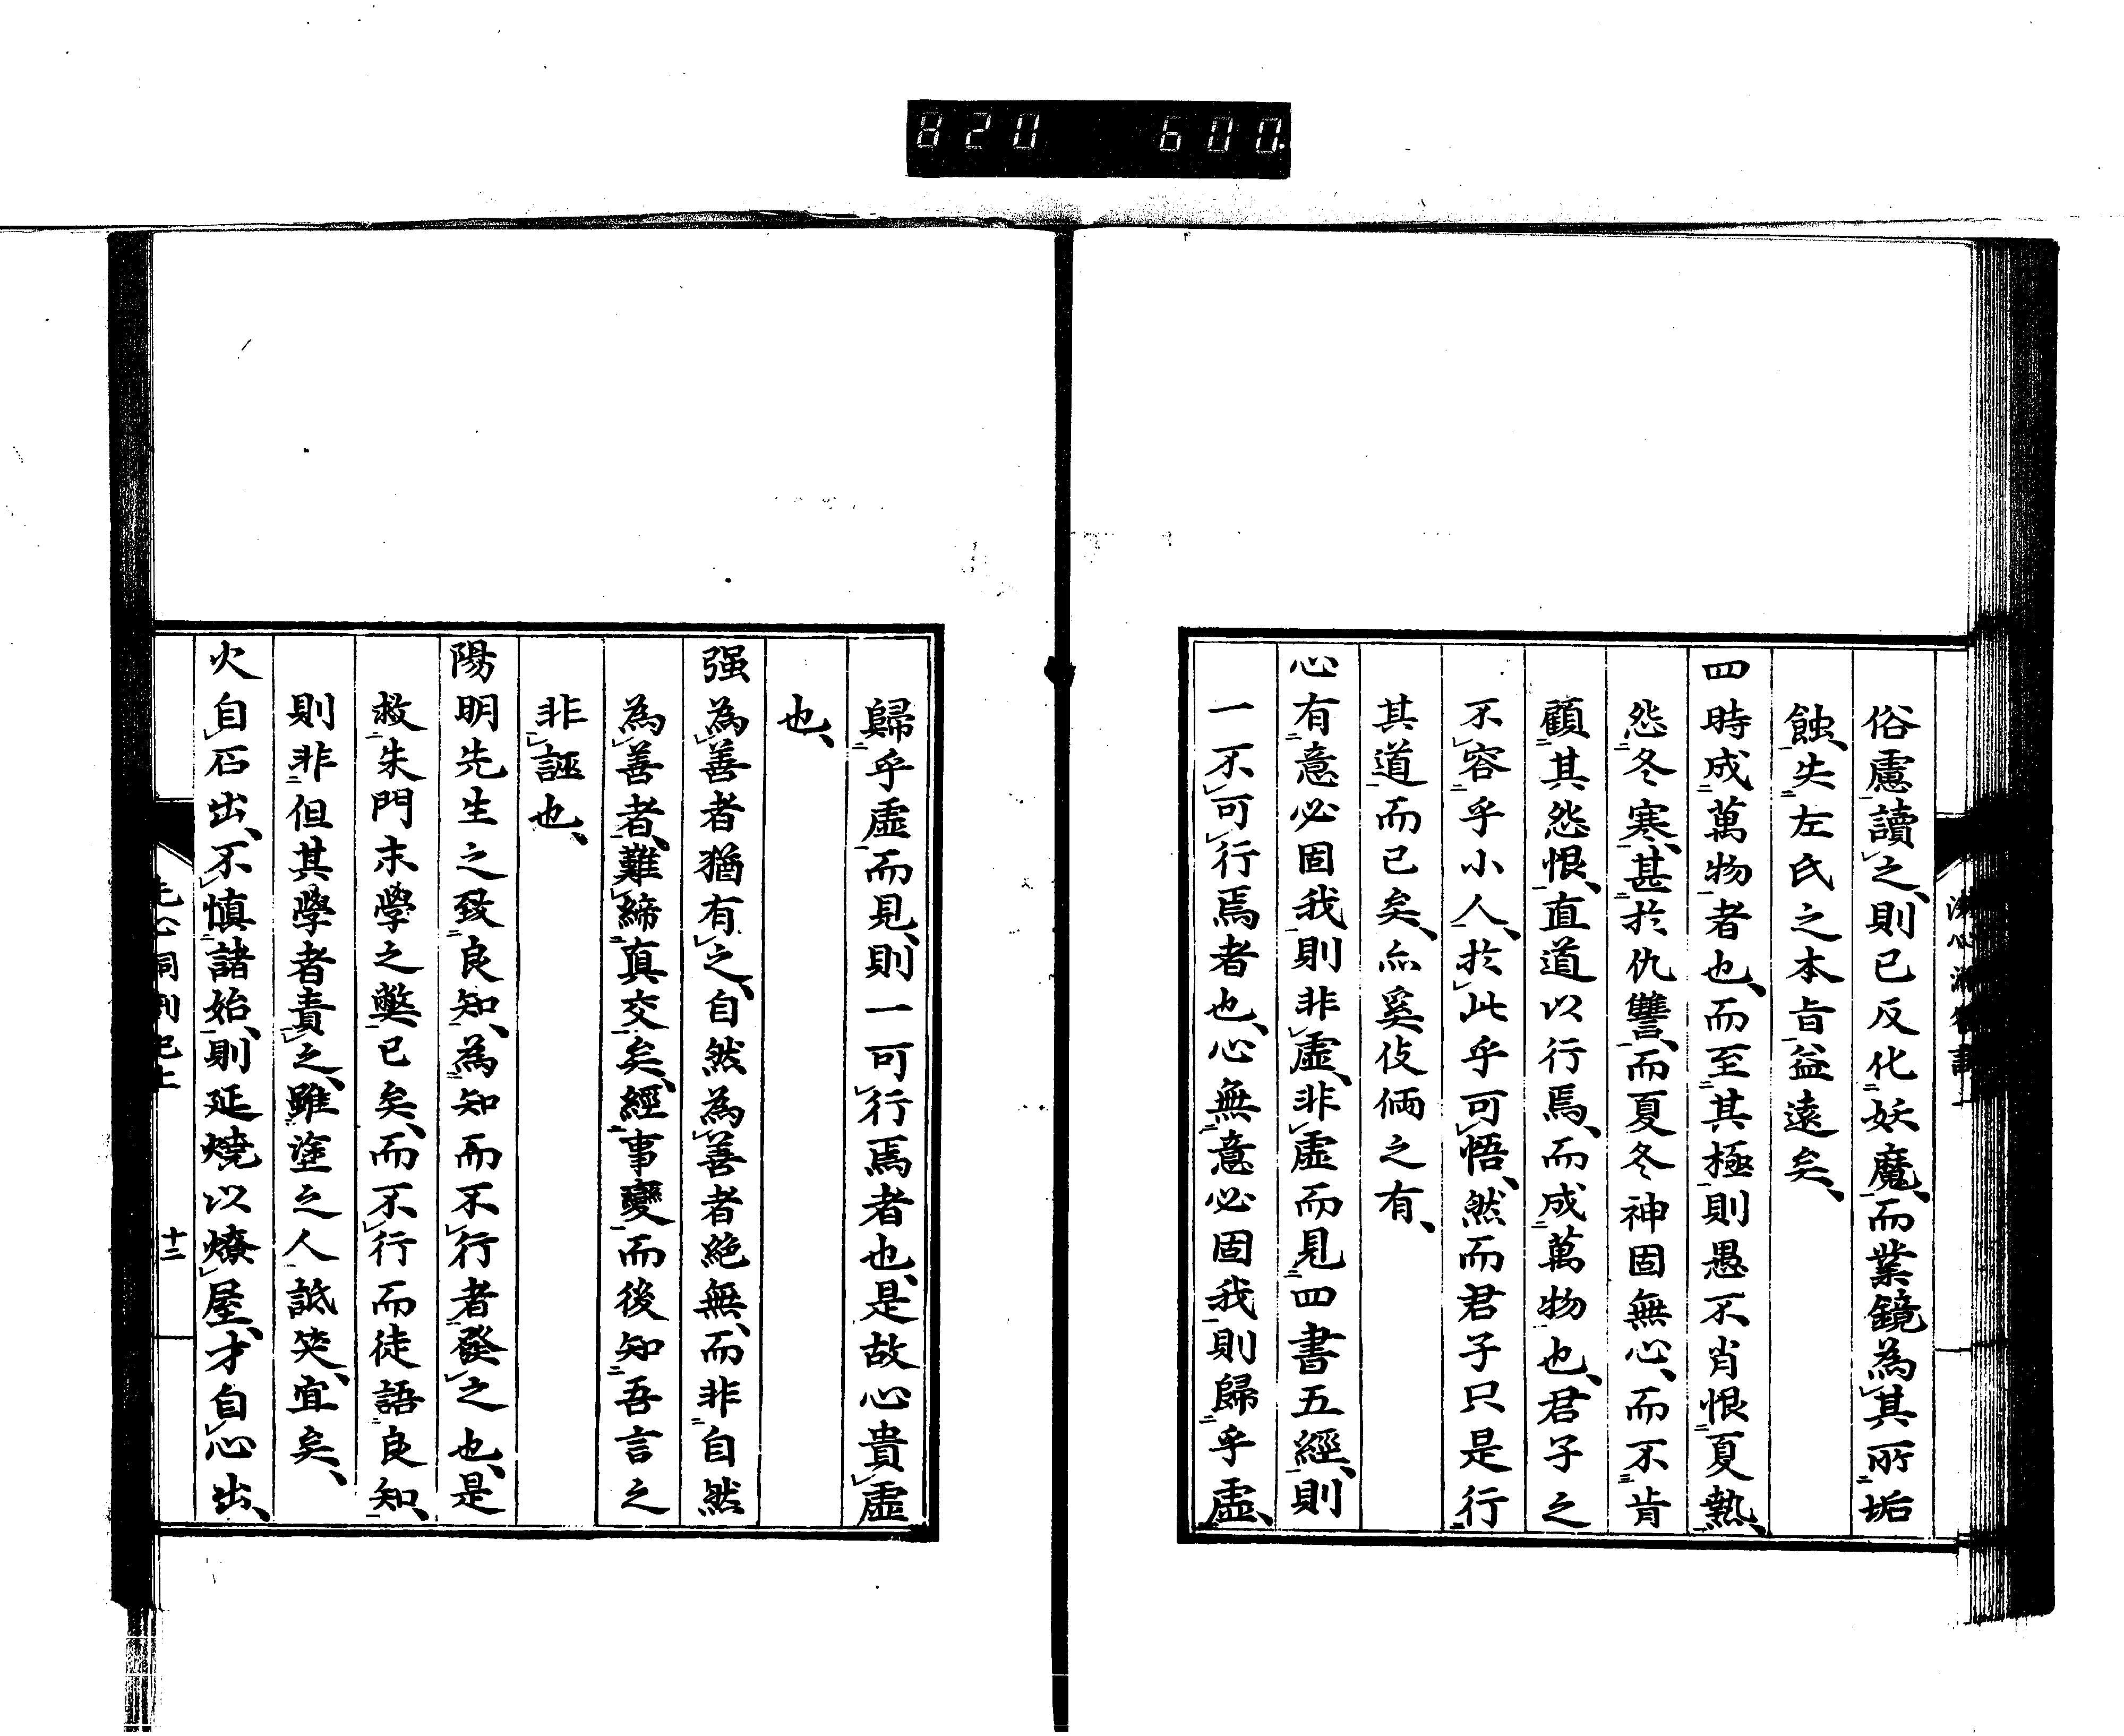 820 600.
俗慮讀之、則已反化妖魔、而業鏡為其所垢
蝕、失左氏之本旨益遠矣、
四時成萬物者也、而至其極則愚不肖恨夏熱、
怨冬寒、甚於仇讐、而夏冬神固無心、而不肯
顧其怨恨、直道以行焉、而成萬物也、君子之
不容乎小人、於此乎可悟、然而君子只是行
其道而已矣、亦奚伎倆之有、
心有意必固我則非虛、非虛而見四書五經、則
一不可行焉者也、心無意必固我則歸乎虛、
歸乎虛而見、則一可行焉者也、是故心貴虛
也、
强為善者猶有之、自然為善者絶無、而非自然
為善者、難締真交矣、經事變而後知吾言之
非誣也、
陽明先生之致良知、為知而不行者發之也、是
救朱門末學之獘已矣、而不行而徒語良知、
則非但其學者責之、雖塗之人詆笑、宜矣、
火自石出、不慎諸始、則延燒以燎屋、才自心出、
十二